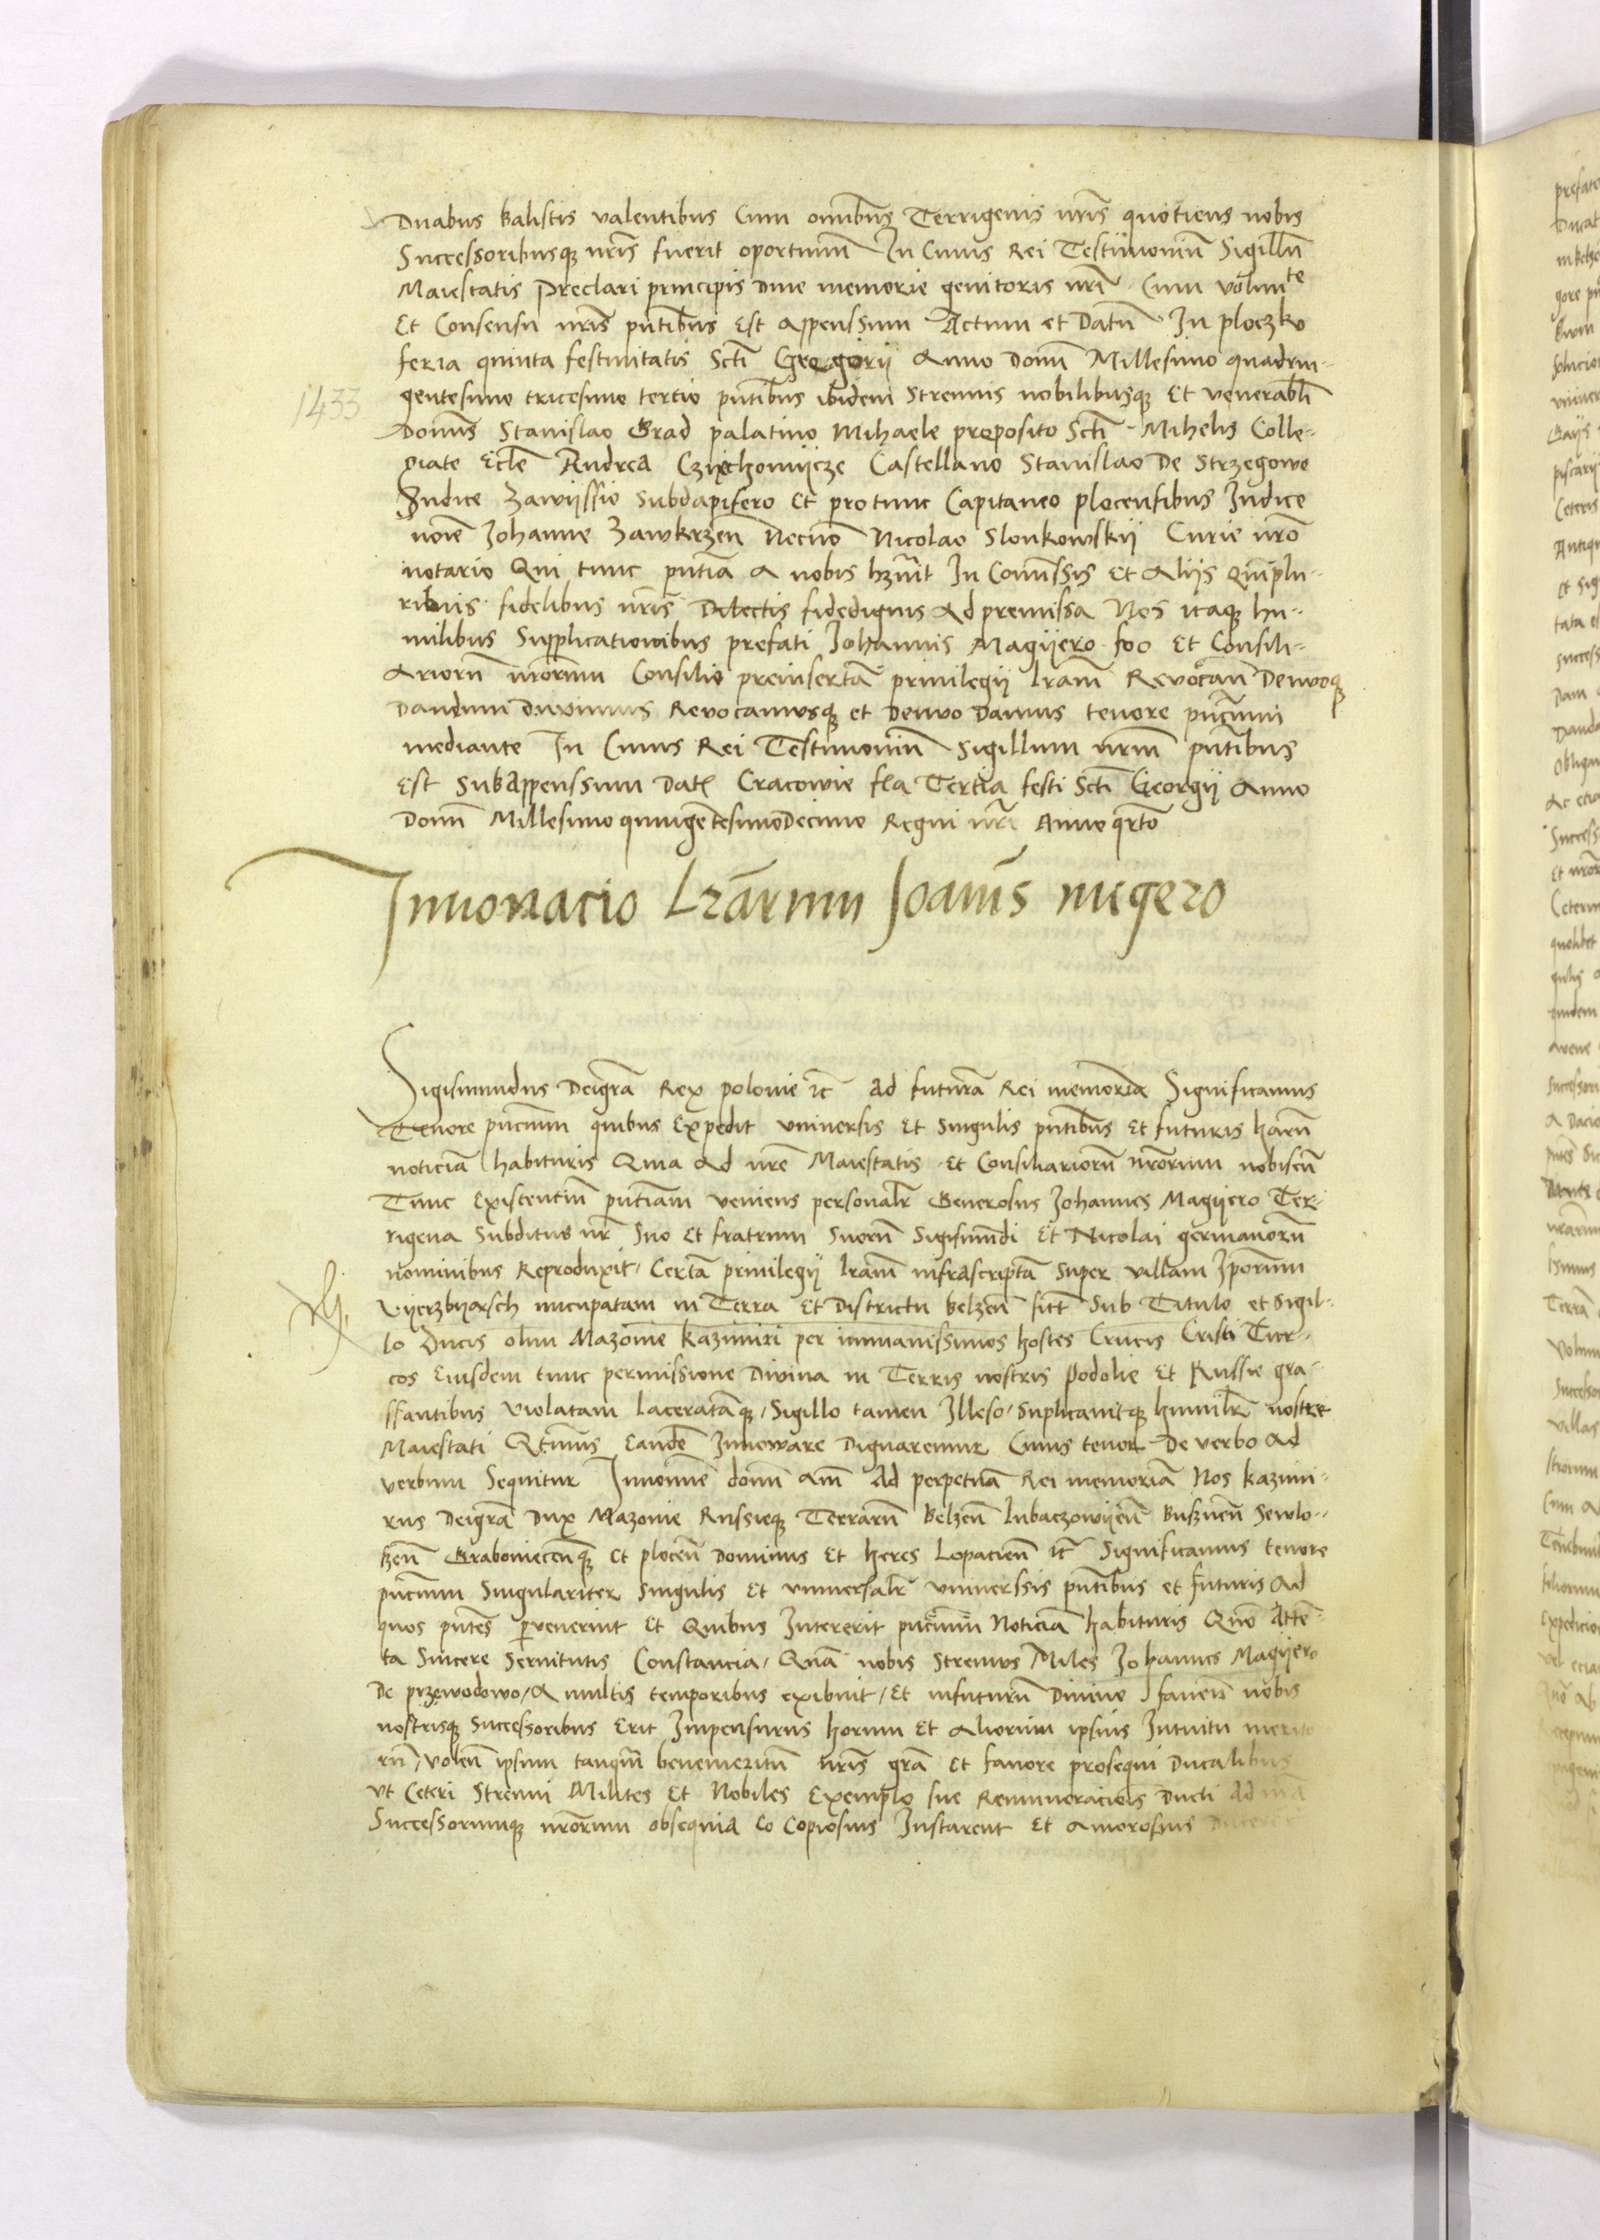 Duabus Balistis valentibus Cum omnibus Terrigenis nris quotiens nobis
Successoribusq nris fuerit oportunum In Cuius Rei Testimonium Sigillum
Maiestatis Preclari principis Dive memorie genitoris nri Cum volunte
Et Consensu nris pntibus Est Appenssum Actum et Datum In ploczko
feria quinta festivitatis Scti Georgii Anno Domi Millesimo quadrin-
1433 gentesimo tricesimo tertio pntibus ibidem Strennuis nobilibusq Et venerabli
Domis Stanislao Grad palatino Mihaele preposito Scti Mihelis Colle-
giate Eccle Andrea Czyechomijcze Castellano Stanislao De Strzegowo
Judice Zawijssio Subdapifero Et protunc Capitaneo plocensibus Judice
Johanne Zawkrzen Necno Nicolao Slonkowskij Curie nro
notario Qui tunc pntia A nobis hzuit In Comissis Et Alijs Qmplu-
ribus fidelibus nris Dilectis fidedignis Ad premissa Nos itaq hu-
milibus Supplicationibus prefati Johannis Magijero Et Consili-
Ariorum nrorum Consilio preinsertam privilegij lram Revocan Denuoq
Dandum Duximus Revocamusq et Denuo Damus tenore pncium
mediante In Cuius Rei Testimonium Sigillum nrm pntibus
Est Subappenssum Dat Cracowie fla Tertia festi Scti Georgij Anno
Domi Millesimo quingentesimo Decimo Regni nri Anno qrto
Innouacio Lrarum Joannis migero
Sigismundus Deigra Rex polonie etc Ad futuram Rei memoria Significamus
Tenore pncium quibus Expedit universis Et Singulis pntibus Et futuris harum
noticiam habituris Quia Ad nre Maiestatis Et Consiliariorum nrorum nobiscum
Tunc Existentium pntiam veniens personalr Generosus Johannes Magijero Ter-
rigena Subditus nr Suo Et fratrum Suorum Sigismundi Et Nicolai germanorum
nominibus Reproduxit Certam privilegij lram infrascriptam Super villam Iporum
Vijerzbijarsch nuncupatam in Terra Et Districtu Belzen Sub Titulo et Sigil-
lo Ducis olim Mazovie Kazimiri per immanissimos hostes Crucis Cristi Tur-
cos Eiusdem tunc permissione Divina in Terris nostris Podolie Et Russie gra-
ssantibus Violatam laceratamq Sigillo tamen Illeso Suplicauitq humilr nostre
Maiestati Qtinus Eande Innovare Dignaremur Cuius tenor De verbo Ad
verbum Sequitur In nomine domi Am Ad perpetuam Rei memoriam Nos Kazimi-
rus Deigra Dux Mazovie Russieq Terrarum Belzen lubaczowijen Buszuen Sewlo-
szen Graboniecenq Et plocen Dominus Et heres Lopacien etc Significamus tenore
pncium Singulariter Singulis Et universalr universsis pntibus et futuris Ad
quos pntes pvenerint Et Quibus Intererit pncium Noticiam habituris Quo Atten-
ta Sincere Servitutis Constancia Quam nobis Strenuus Miles Johannes Magijero
De przewodowo A multis temporibus exibuit Et infuturum Divino favente nobis
nostrisq Successoribus Erit Impensurus horum Et Aliorum ipsius Intuitu merito
rum volen ipsum tanqm benemeritum nris gra Et favore prosequi Ducalibus
ut Ceteri Strenui Milites Et Nobiles Exemplo sue Remuneracionis Ducti Ad
Successorumq nrorum obsequia Eo Copiosius Instarent Et Amorosius